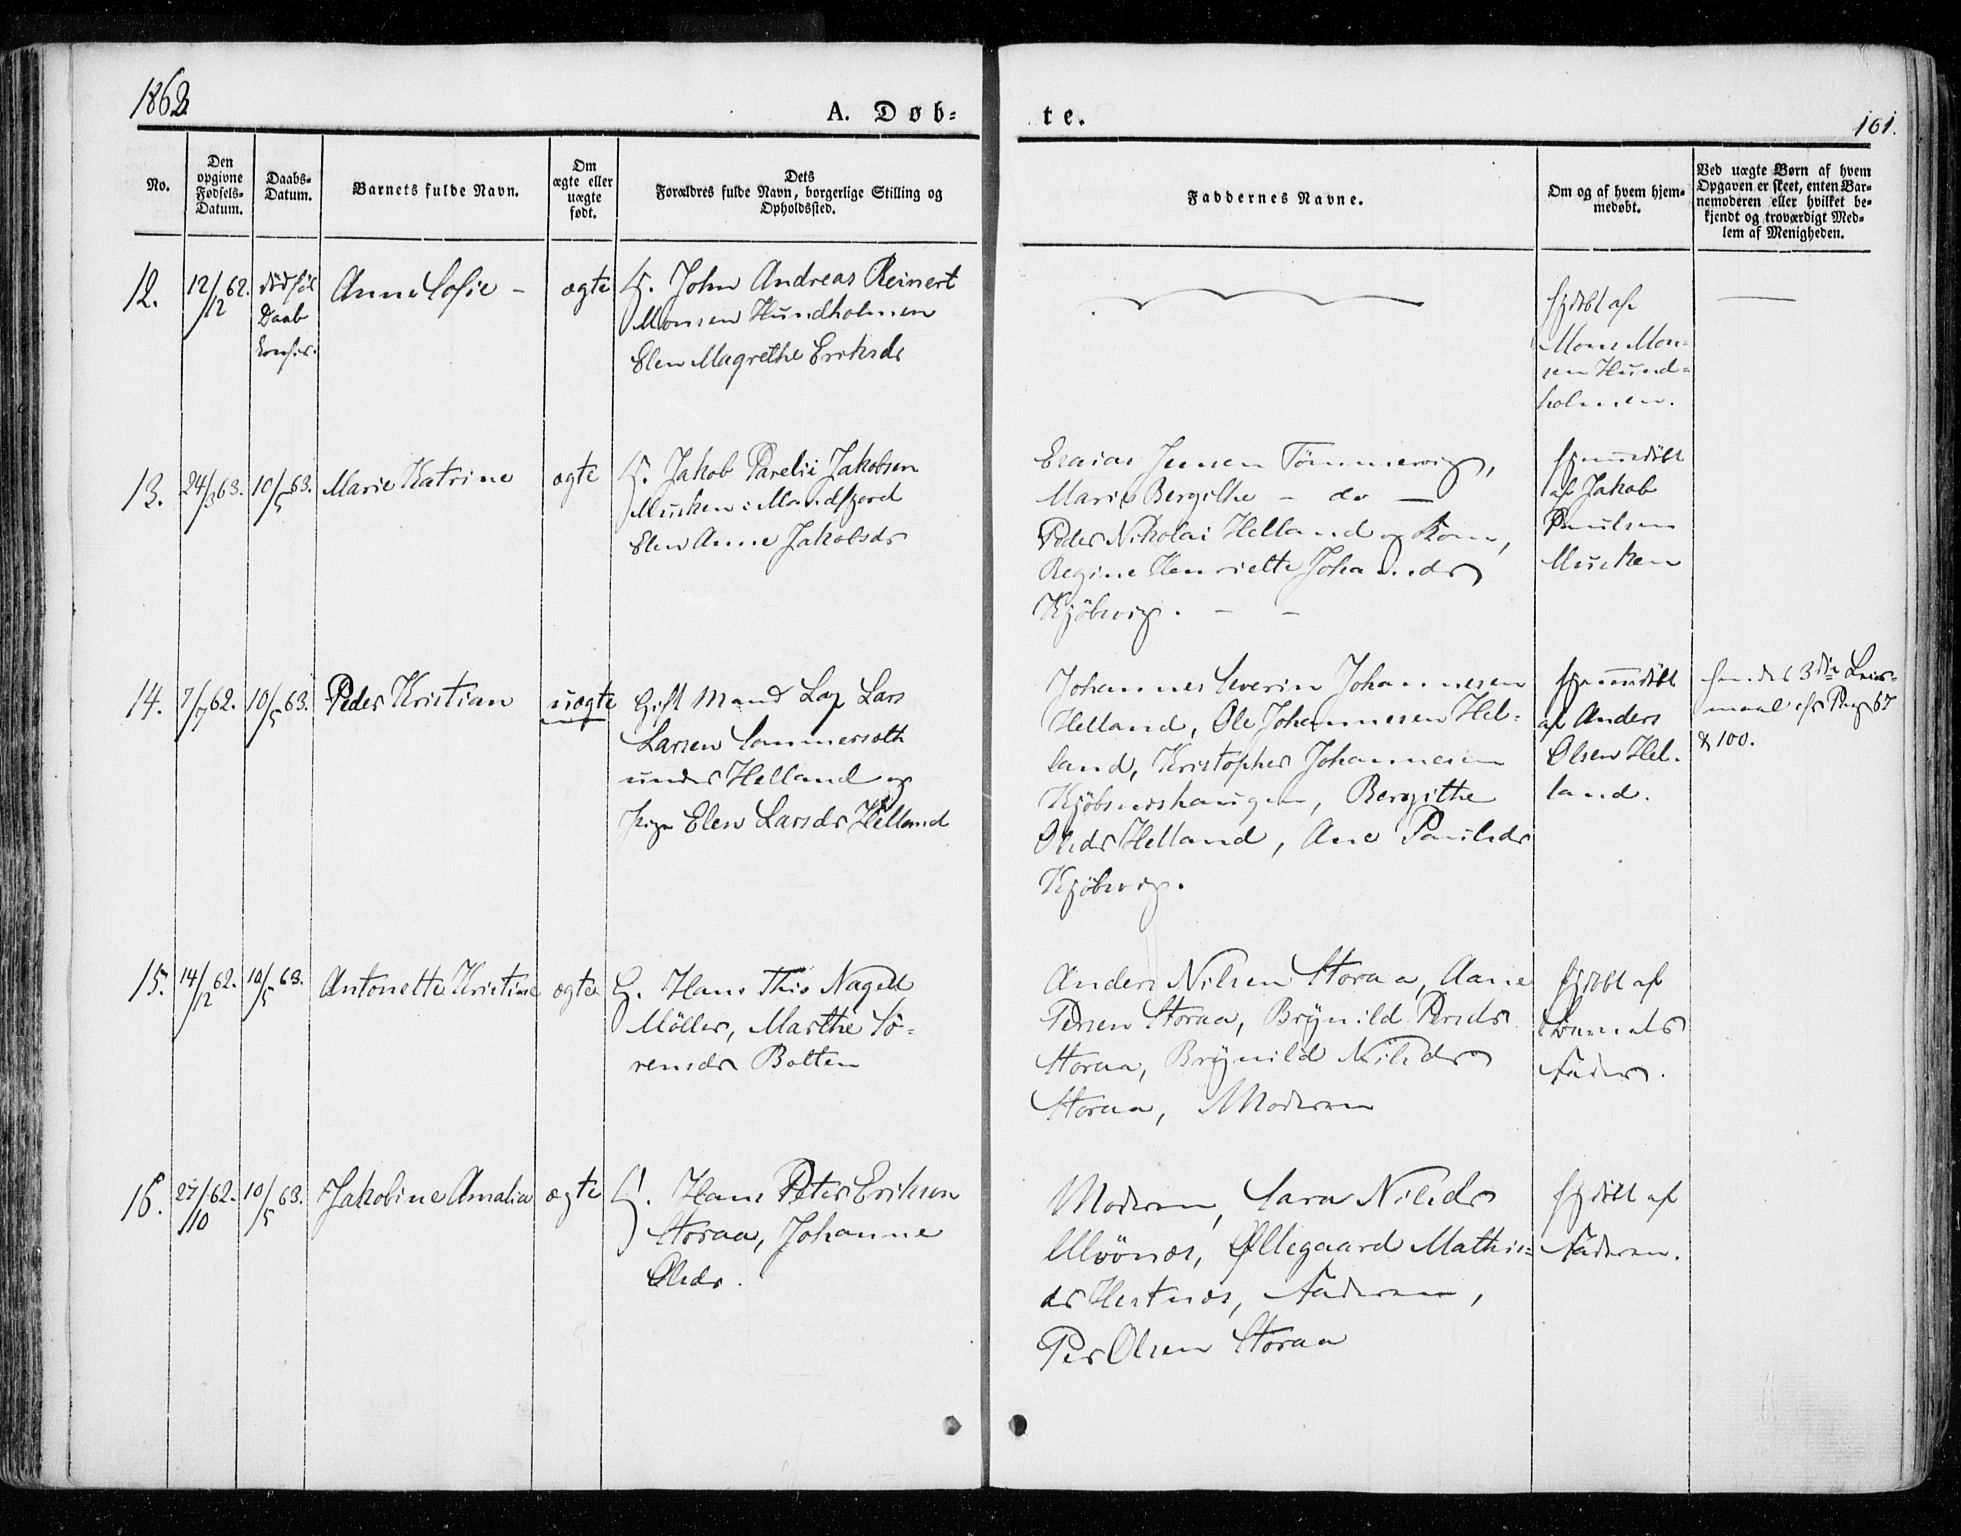 1862
A. Døb-
te.
161.
No.
Den
opgivne
Fødsels-
Datum.
Daabs-
Datum.
Barnets fulde Navn.
Om
ægte eller
uægte
født.
Dets
Forældres fulde Navn, borgerlige Stilling og
Opholdssted.
Faddernes Navne.
Om og af hvem hjem-
medøbt.
Ved uægte Børn af hvem
Opgaven er skeet, enten Bar-
nemoderen eller hvilket be-
kjendt og troværdigt Med-
lem af Menigheden.
12.
12/12 62.
død før
Daab
Anne Sofie -
ægte
G. John Andreas Reinert
Monsen Hundholmen
Elen Magrethe Eriksdr
hjdøbt af
Mons Mon-
sen Hund-
holmen.
13.
24/3 63.
10/5 63.
Marie Katrine
ægte
G. Jakob Parelii Jakobsen
Musken i Mandfjord
Elen Anne Jakobsdr
Esaias Jensen Tømmervig,
Marie Bergithe - do -
Peder Nikolai Helland og Kone,
Regine Henriette Johansdr
Kjöbvig. - -
hjemmedöbt
af Jakob
Paulsen
Musken
14.
7/7 62.
10/5 63.
Peder Kristian
uægte
Gift Mand Lap Lars
Larsen Sommersæth
under Helland og
Pige Elen Larsdr Helland
Johannes Severin Johannesen
Helland, Ole Johannesen Hel-
land, Kristopher Johannesen
Kjöbsneshaugen, Bergithe
Olsdr Helland, Ane Paulsdr
Kjöbvig.
hjemmedöbt
af Anders
Olsen Hel-
land.
hendes 3die Leier-
maal cfr Pag 67
& 100.
15.
14/12 62.
10/5 63.
Antonette Kristine
ægte
G. Hans This Nagell
Möller, Marthe Sö-
rensdr Botten
Anders Nilsen Storaa, Aane
Persen Storaa, Brÿnild Persdr
Storaa, Brÿnild Nilsdr
Storaa, Moderen
hjdöbt af
Barnets
Fader.
16.
27/10 62.
10/5 63.
Jakobine Amalia
ægte
G. Hans Peter Eriksen
Storaa, Johanne
Olsdr.
Moderen, Sara Nilsdr
Ulvönæs, Øllegaard Mathis-
dr Hestnæs, Faderen,
Per Olsen Storaa
hjdöbt af
Faderen.